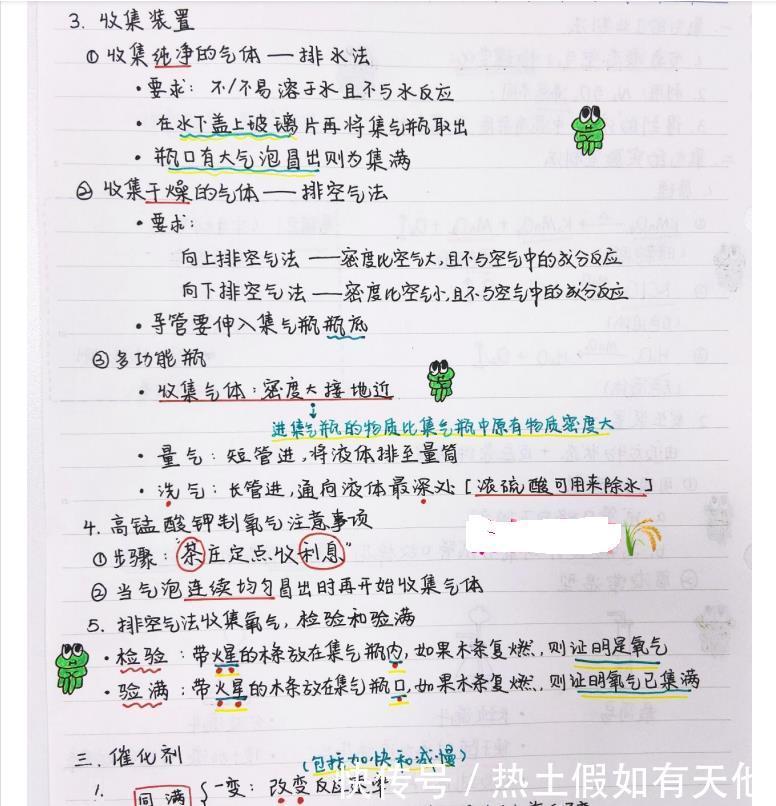 3. 收集装置
① 收集纯净的气体 — 排水法
· 要求: 不/不易溶于水且不与水反应
· 在水下盖上玻璃片再将集气瓶取出
· 瓶口有大气泡冒出则为集满
② 收集干燥的气体 — 排空气法
· 要求:
向上排空气法 — 密度比空气大,且不与空气中的成分反应
向下排空气法 — 密度比空气小,且不与空气中的成分反应
· 导管要伸入集气瓶瓶底
③ 多功能瓶
· 收集气体: 密度大接地近
进集气瓶的物质比集气瓶中原有物质密度大
· 量气: 短管进,将液体排至量筒
· 洗气: 长管进,通向液体最深处 [浓硫酸可用来除水]
4. 高锰酸钾制氧气注意事项
① 步骤: "茶庄定点收利息"
② 当气泡连续均匀冒出时再开始收集气体
5. 排空气法收集氧气,检验和验满
· 检验: 带火星的木条放在集气瓶内,如果木条复燃,则证明是氧气
· 验满: 带火星的木条放在集气瓶口,如果木条复燃,则证明氧气已集满
三. 催化剂
(包括加快和减慢)
1. 同满 { 一变: 改变反应速率
快传号 / 热土假如有天他